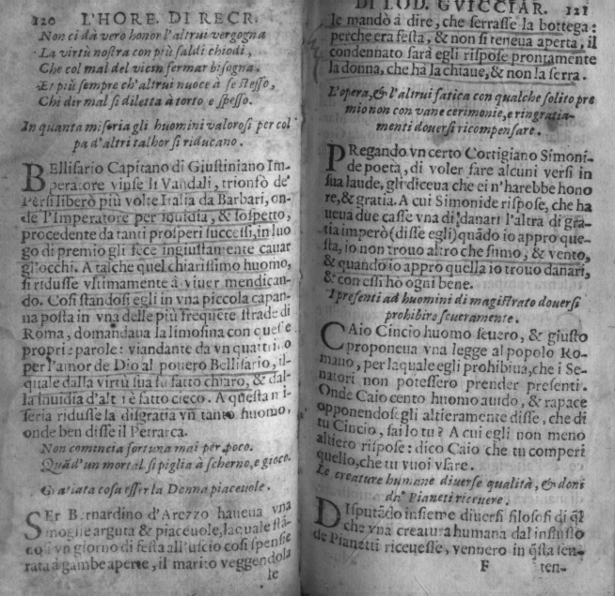 120 L'HORE. DI RECR.
Non ci dà vero honor l'altrui vergogna
La virtù nostra con più saldi chiodi,
Che col mal del vicin fermar bisogna.
Et più sempre ch'altrui nuoce à se stesso,
Chi dir mal si diletta à torto e spesso.
In quanta miseria gli huomini valorosi per col
pa d'altri talhor si riducano.
BEllisario Capitano di Giustiniano Im-
peratore vinse li Vandali, trionfò de'
Persi liberò più volte Italia da Barbari, on-
de l'Imperatore per inuidia, & sospetto,
procedente da tanti prosperi successi, in luo
go di premio gli fece ingiustamente cauar
gl'occhi. A talche quel chiarissimo huomo,
si ridusse vltimamente à viuer mendican-
do. Cosi standosi egli in vna piccola capan-
na posta in vna delle più frequete strade di
Roma, domandaua la limosina con queste
proprie parole: viandante da vn quattrino
per l'amor de Dio al pouero Bellisario, il-
quale dalla virtù sua fu fatto chiaro, & dal-
la inuidia d'altri è fatto cieco. A questa mi
seria ridusse la disgratia vn tanto huomo,
onde ben disse il Petrarca.
Non comincia fortuna mai per poco.
Quād'un mortal si piglia à scherno, e gioco.
Gratiata cosa esser la Donna piaceuole.
SEr Bernardino d'Arezzo haueua vna
moglie arguta & piaceuole, laquale stā-
do vn giorno di festa all'uscio cosi spensie
rata à gambe aperte, il marito veggendola
le
DI LOD. GVICCIAR. 121
le mandò à dire, che serrasse la bottega:
perche era festa, & non si teneua aperta, il
condennato sarà egli rispose prontamente
la donna, che ha la chiaue, & non la serra.
L'opera, & l'altrui fatica con qualche solito pre
mio non con vane cerimonie, e ringratia-
menti douersi ricompensare.
PRegando vn certo Cortigiano Simoni-
de poeta, di voler fare alcuni versi in
sua laude, gli diceua che ei n'harebbe hono
re, & gratia. A cui Simonide rispose, che ha
ueua due casse vna di danari l'altra di gra-
tia imperò (disse egli) quādo io appro que-
sta, io non trouo altro che fumo, & vento,
& quando io appro quella io trouo danari,
& con essi ho ogni bene.
I presenti ad huomini di magistrato douersi
prohibire seueramente.
CAio Cincio huomo seuero, & giusto
proponeua vna legge al popolo Ro-
mano, per laquale egli prohibiua, che i Se-
natori non potessero prender presenti.
Onde Caio cento huomo auido, & rapace
opponendosegli altieramente disse, che di
tu Cincio, sai lo tu? A cui egli non meno
altiero rispose: dico Caio che tu comperi
quello, che tu vuoi vsare.
Le creature humane diuerse qualità, & doni
da' Pianeti riceuere.
DIsputādo insieme diuersi filosofi di q̄l
che vna creatura humana dal influsso
de Pianetti riceuesse, vennero in q̄sta sen-
F ten-